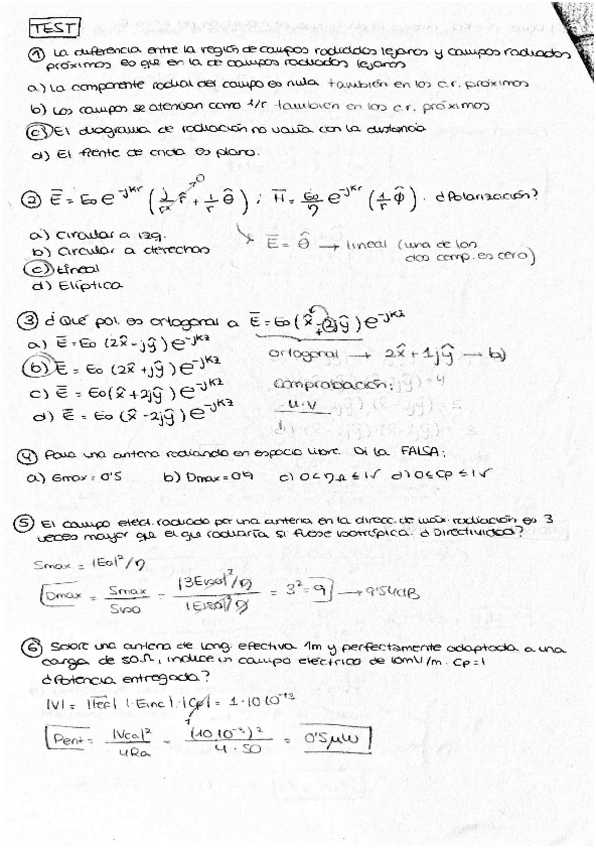 TEST
① La diferencia entre la región de campos radiados lejanos y campos radiados
próximos es que en la de campos radiados lejanos
a) La componente radial del campo es nula también en los c.r. próximos
b) Los campos se atenúan como 1/r también en los c.r. próximos
c) El diagrama de radiación no varía con la distancia
d) El frente de onda es plano.
② E̅ = E₀ e^-jkr (j/r² r̂ + 1/r θ̂) ; H̅ = E₀/η e^-jkr (1/r ϕ̂) . ¿Polarización?
0
a) Circular a izq.
b) Circular a derechas
E̅ = θ̂ → lineal (una de las
dos comp. es cero)
c) Lineal
d) Elíptica
③ ¿Qué pol. es ortogonal a E̅ = E₀ (x̂ - 2jŷ) e^-jkz
a) E̅ = E₀ (2x̂ - jŷ) e^-jkz
b) E̅ = E₀ (2x̂ + jŷ) e^-jkz
ortogonal → 2x̂ + 1jŷ → b)
c) E̅ = E₀ (x̂ + 2jŷ) e^-jkz
comprobación:
d) E̅ = E₀ (x̂ - 2jŷ) e^-jkz
u.v
④ Para una antena radiando en espacio libre. Di la FALSA:
a) Gmax = 0'5 b) Dmax = 0'9 c) 0 < ηΩ ≤ 1 ✓ d) 0 ≤ Cp ≤ 1 ✓
⑤ El campo eléct. radiado por una antena en la direcc. de máx. radiación es 3
veces mayor que el que radiaría si fuese isotrópica. ¿Directividad?
Smax = |E₀|²/η
Dmax = Smax/Siso = |3Eiso|²/η / |Eiso|²/η = 3² = 9 → 9'54dB
⑥ Sobre una antena de long. efectiva 1m y perfectamente adaptada a una
carga de 50Ω, induce un campo eléctrico de 10mV/m. Cp=1
¿Potencia entregada?
|V| = |l̅ef| · |Einc| · |Cp| = 1 · 10 10⁻³
1
Pent = |Vca|²/4Ra = (10 10⁻³)²/4·50 = 0'5 μW